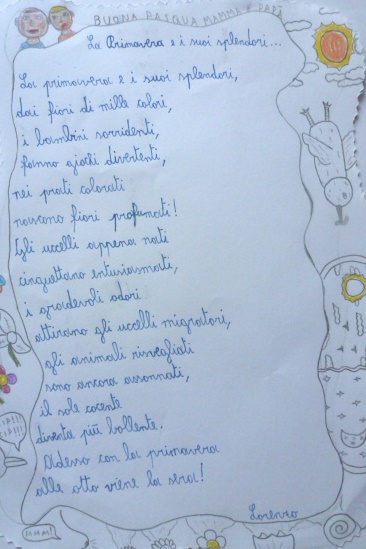 BUONA PASQUA MAMMA E PAPÀ
La Primavera e i suoi splendori...
La primavera e i suoi splendori,
dai fiori di mille colori,
i bambini sorridenti,
fanno giochi divertenti,
nei prati colorati
nascono fiori profumati!
Gli uccelli appena nati
cinguettano entusiasmati,
i gradevoli odori
attirano gli uccelli migratori,
gli animali risvegliati
sono ancora assonnati,
il sole cocente
diventa più bollente.
Adesso con la primavera
alle otto viene la sera!
Lorenzo